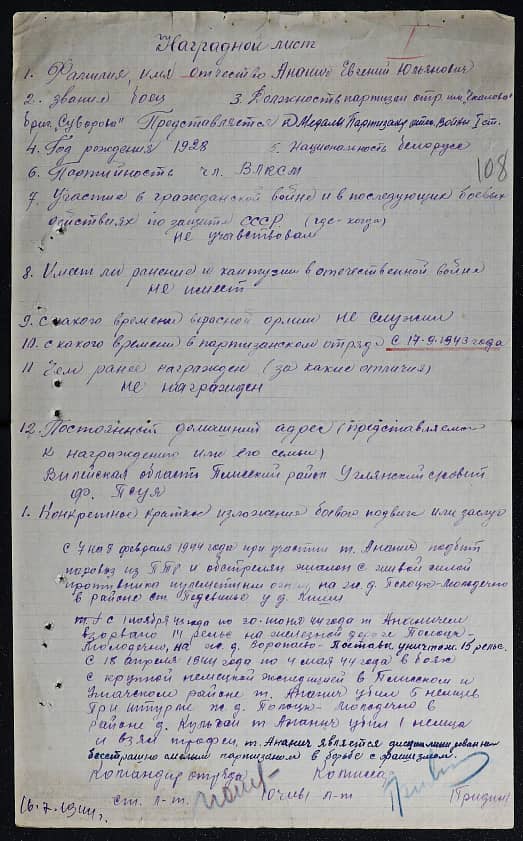 I
Наградной лист
1. Фамилия, имя отчество Ананич Евгений Юльянович
2. звание боец 3. Должность партизан отр. им. Чкалова
бриг. "Суворова" Представляется к Медали Партизану отеч. Войны I ст.
4. Год рождения 1928 5. Национальность белорусс
108
6. Партийность чл. ВЛКСМ
7. Участие в гражданской войне и в последующих боевых
действиях по защите СССР (где-когда)
не участвовал
8. Имеет ли ранение и контузии в отечественной войне
не имеет
9. с какого времени в красной армии не служил
10. с какого времени в партизанском отряде с 17-9-1943 года
11 Чем ранее награжден (за какие отличия)
не награжден
12. Постоянный домашний адрес (представляемого
к награждению или его семьи)
Вилейская область Плисский район Углянский с/совет
Псуя
1. Конкретное краткое изложение боевого подвига или заслуг
с 7 на 8 февраля 1944 года при участии т. Ананич подбит
паровоз из ПТР и обстрелян эшелон с живой силой
противника пулеметным огнем, на ж.д. Полоцк-Молодечно
в районе ст. у д.
с 1 ноября 43 года по 20-июня 44 года т Ананичем
взорвано 14 рельс на железной дороге Полоцк-
Молодечно, на ж.д. Воропаево-Поставы уничтож. 15 рельс.
С 18 апреля 1944 года по 4 мая 44 года в боях
с крупной немецкой экспедицией в Плисском и
Ушачском районе т. Ананич убил 5 немцев
При штурме ж д Полоцк-Молодечно в
районе д. т Ананич убил 1 немца
и взял трофеи, т. Ананич является дисциплинированным
бесстрашно смелым партизаном в борьбе с фашизмом.
Командир отряда Комиссар
ст. л-т л-т
16.7.1944 г.